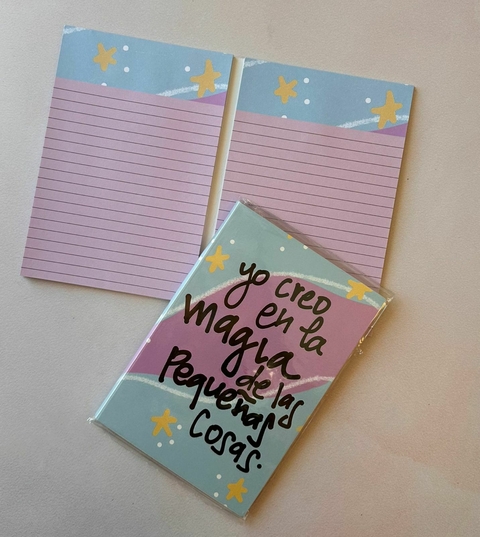 yo creo
en la
magia
de las
pequeñas
cosas.